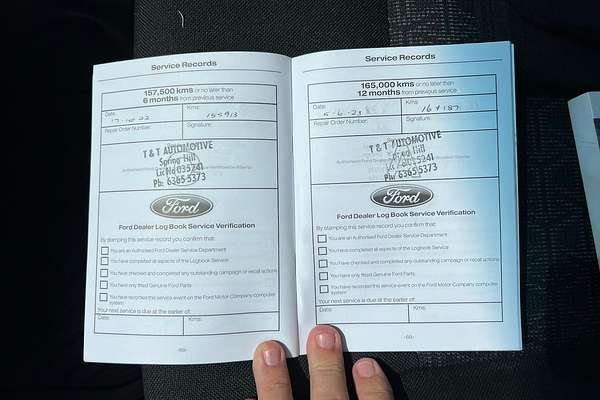 Service Records
157,500 kms or no later than
6 months from previous service
Date: Kms:
17-10-22 155913
Repair Order Number: Signature:
T & T AUTOMOTIVE
Spring Hill
Lic No 035241
Ph: 6365 5373
Ford
Ford Dealer Log Book Service Verification
By stamping this service record you confirm that:
You are an Authorised Ford Dealer Service Department
You have completed all aspects of the Logbook Service
You have checked and completed any outstanding campaign or recall actions
You have only fitted Genuine Ford Parts
You have recorded this service event on the Ford Motor Company computer
system
Your next service is due at the earlier of:
Date: Kms:
Service Records
165,000 kms or no later than
12 months from previous service
Date: Kms:
Repair Order Number: Signature:
T & T AUTOMOTIVE
Spring Hill
Ph: 6365 5373
Ford
Ford Dealer Log Book Service Verification
By stamping this service record you confirm that:
You are an Authorised Ford Dealer Service Department
You have completed all aspects of the Logbook Service
You have checked and completed any outstanding campaign or recall actions
You have only fitted Genuine Ford Parts
You have recorded this service event on the Ford Motor Company computer
system
Your next service is due at the earlier of:
Date: Kms: